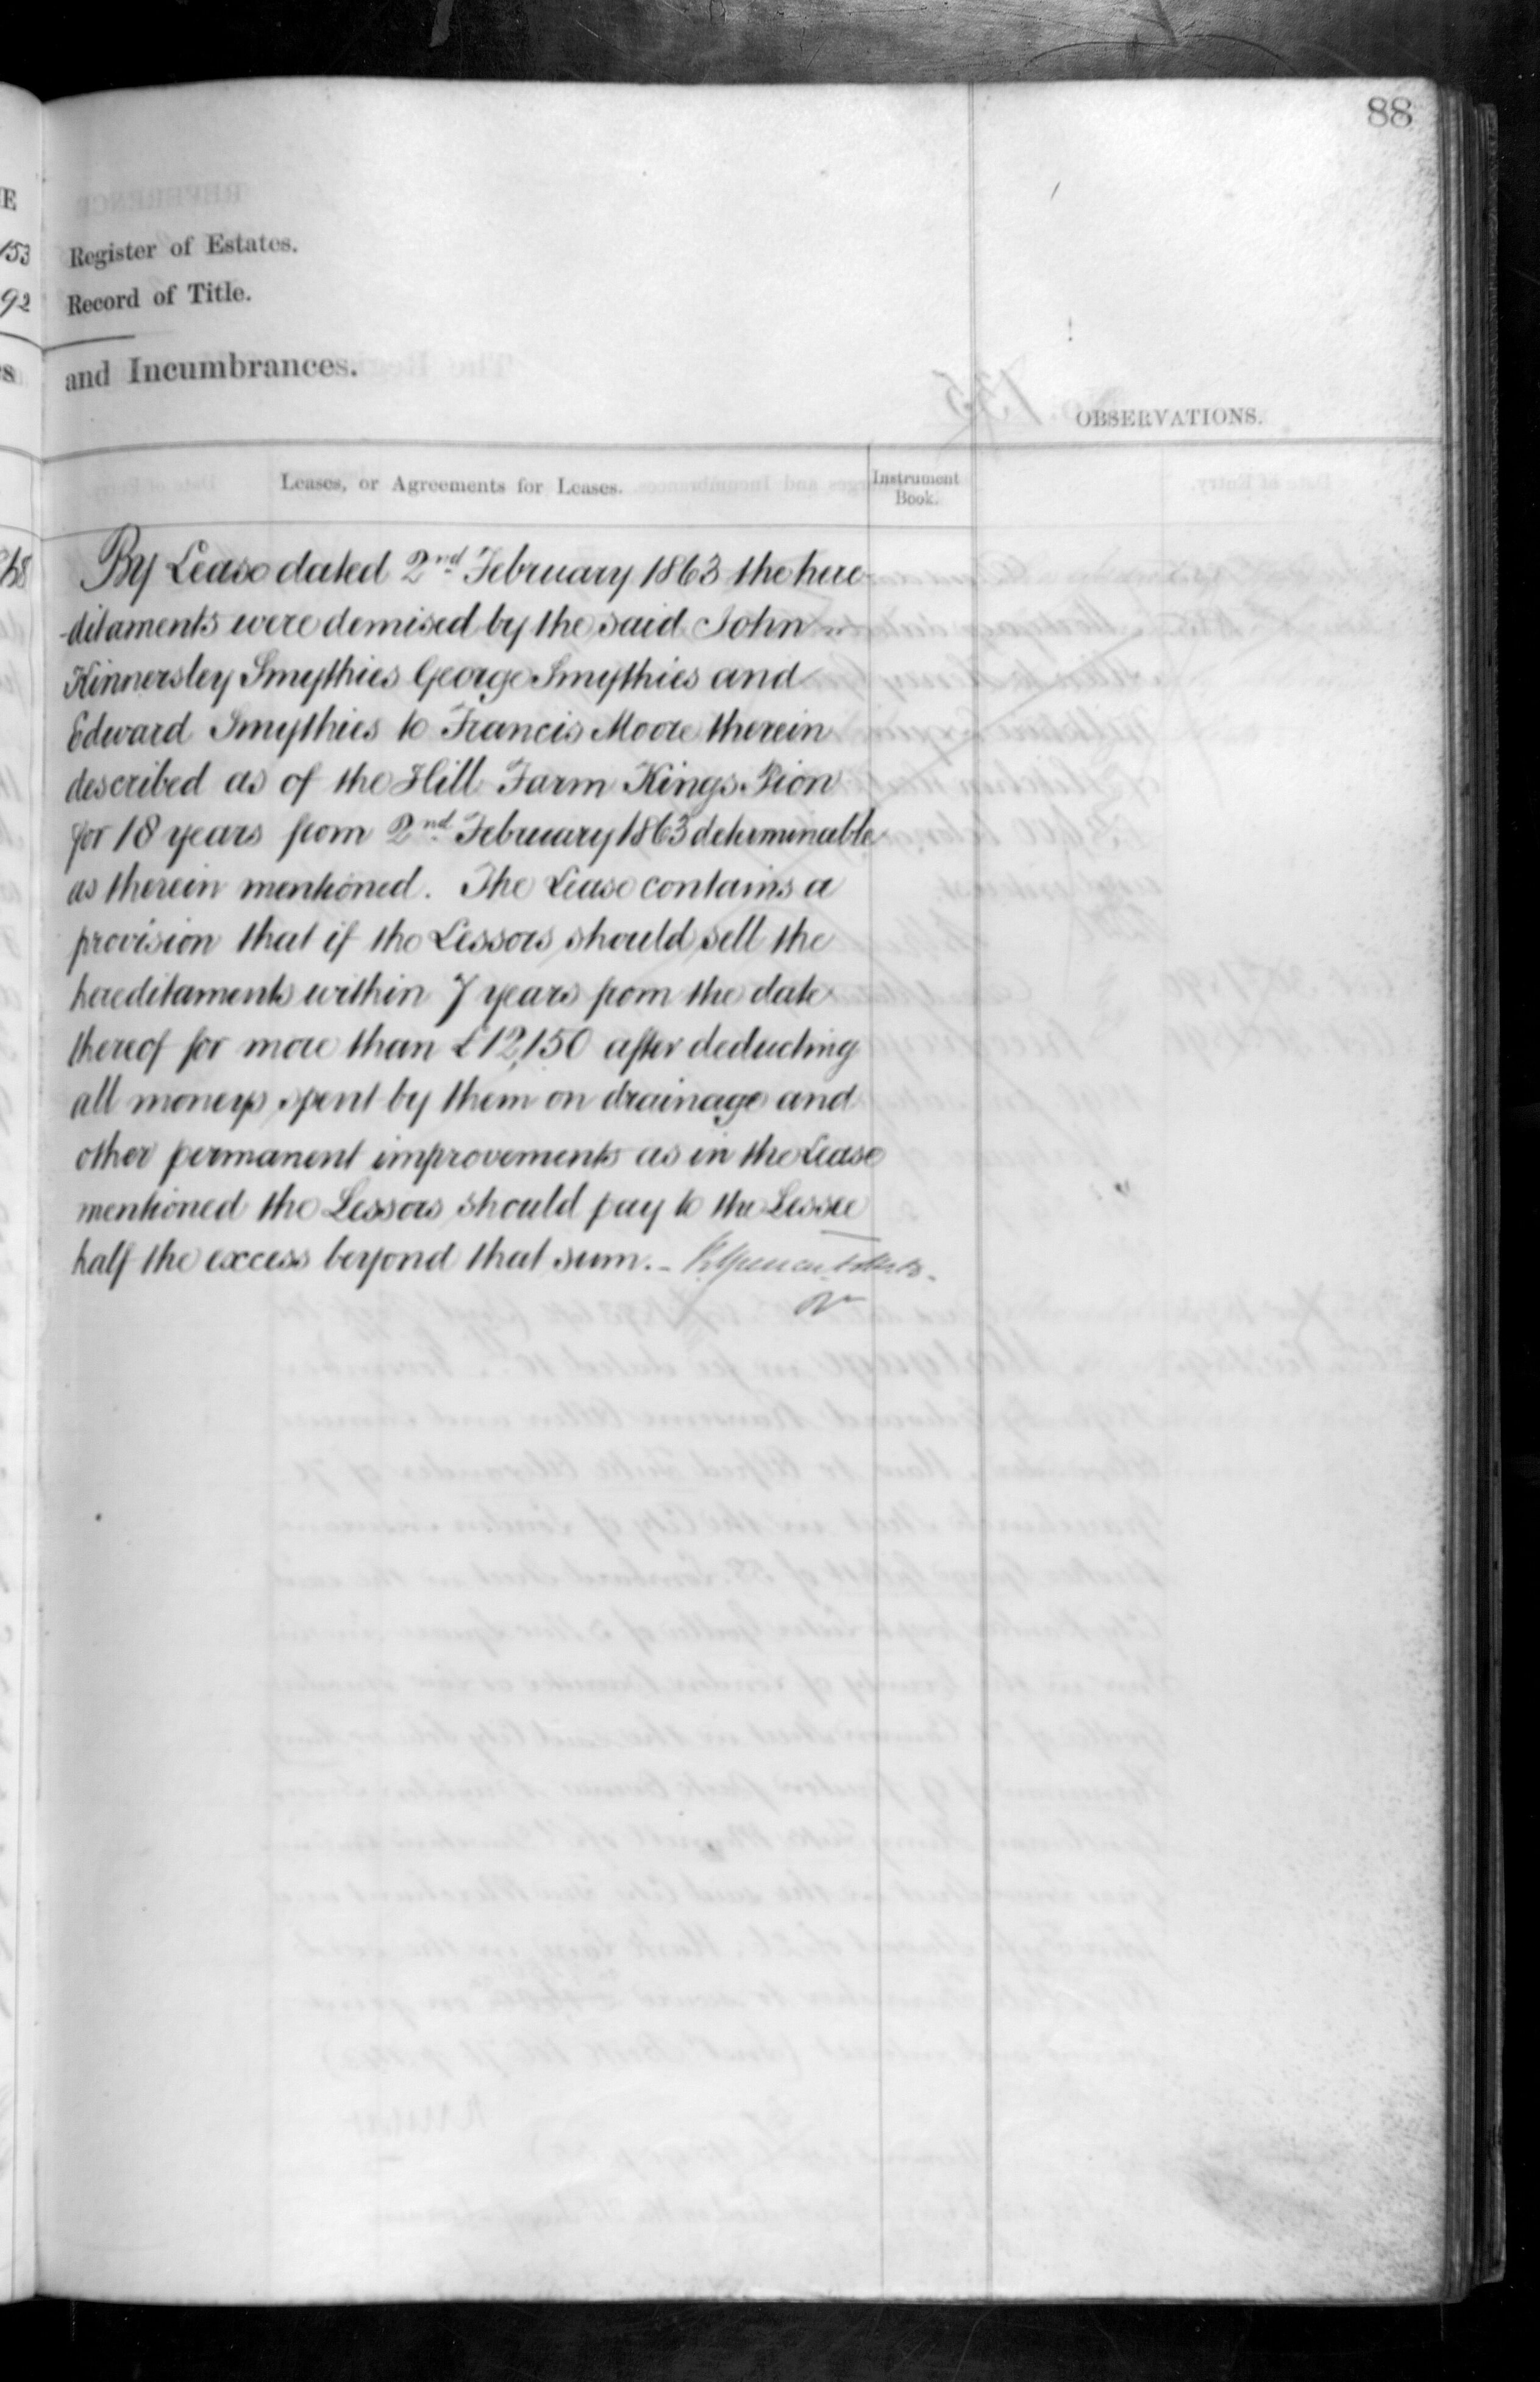 88
E
153
92
s
Register of Estates.
Record of Title.
and Incumbrances.
OBSERVATIONS.
Leases, or Agreements for Leases.
Instrument
Book.
By Lease dated 2nd February 1863 the here-
-ditaments were demised by the said John
Kinnersley Smythies George Smythies and
Edward Smythies to Francis Moore therein
described as of the Hill Farm Kings Pion
for 18 years from 2nd February 1863 determinable
as therein mentioned. The Lease contains a
provision that if the Lessors should sell the
hereditaments within 7 years from the date
thereof for more than £12,150 after deducting
all moneys spent by them on drainage and
other permanent improvements as in the Lease
mentioned the Lessors should pay to the Lessee
half the excess beyond that sum. -